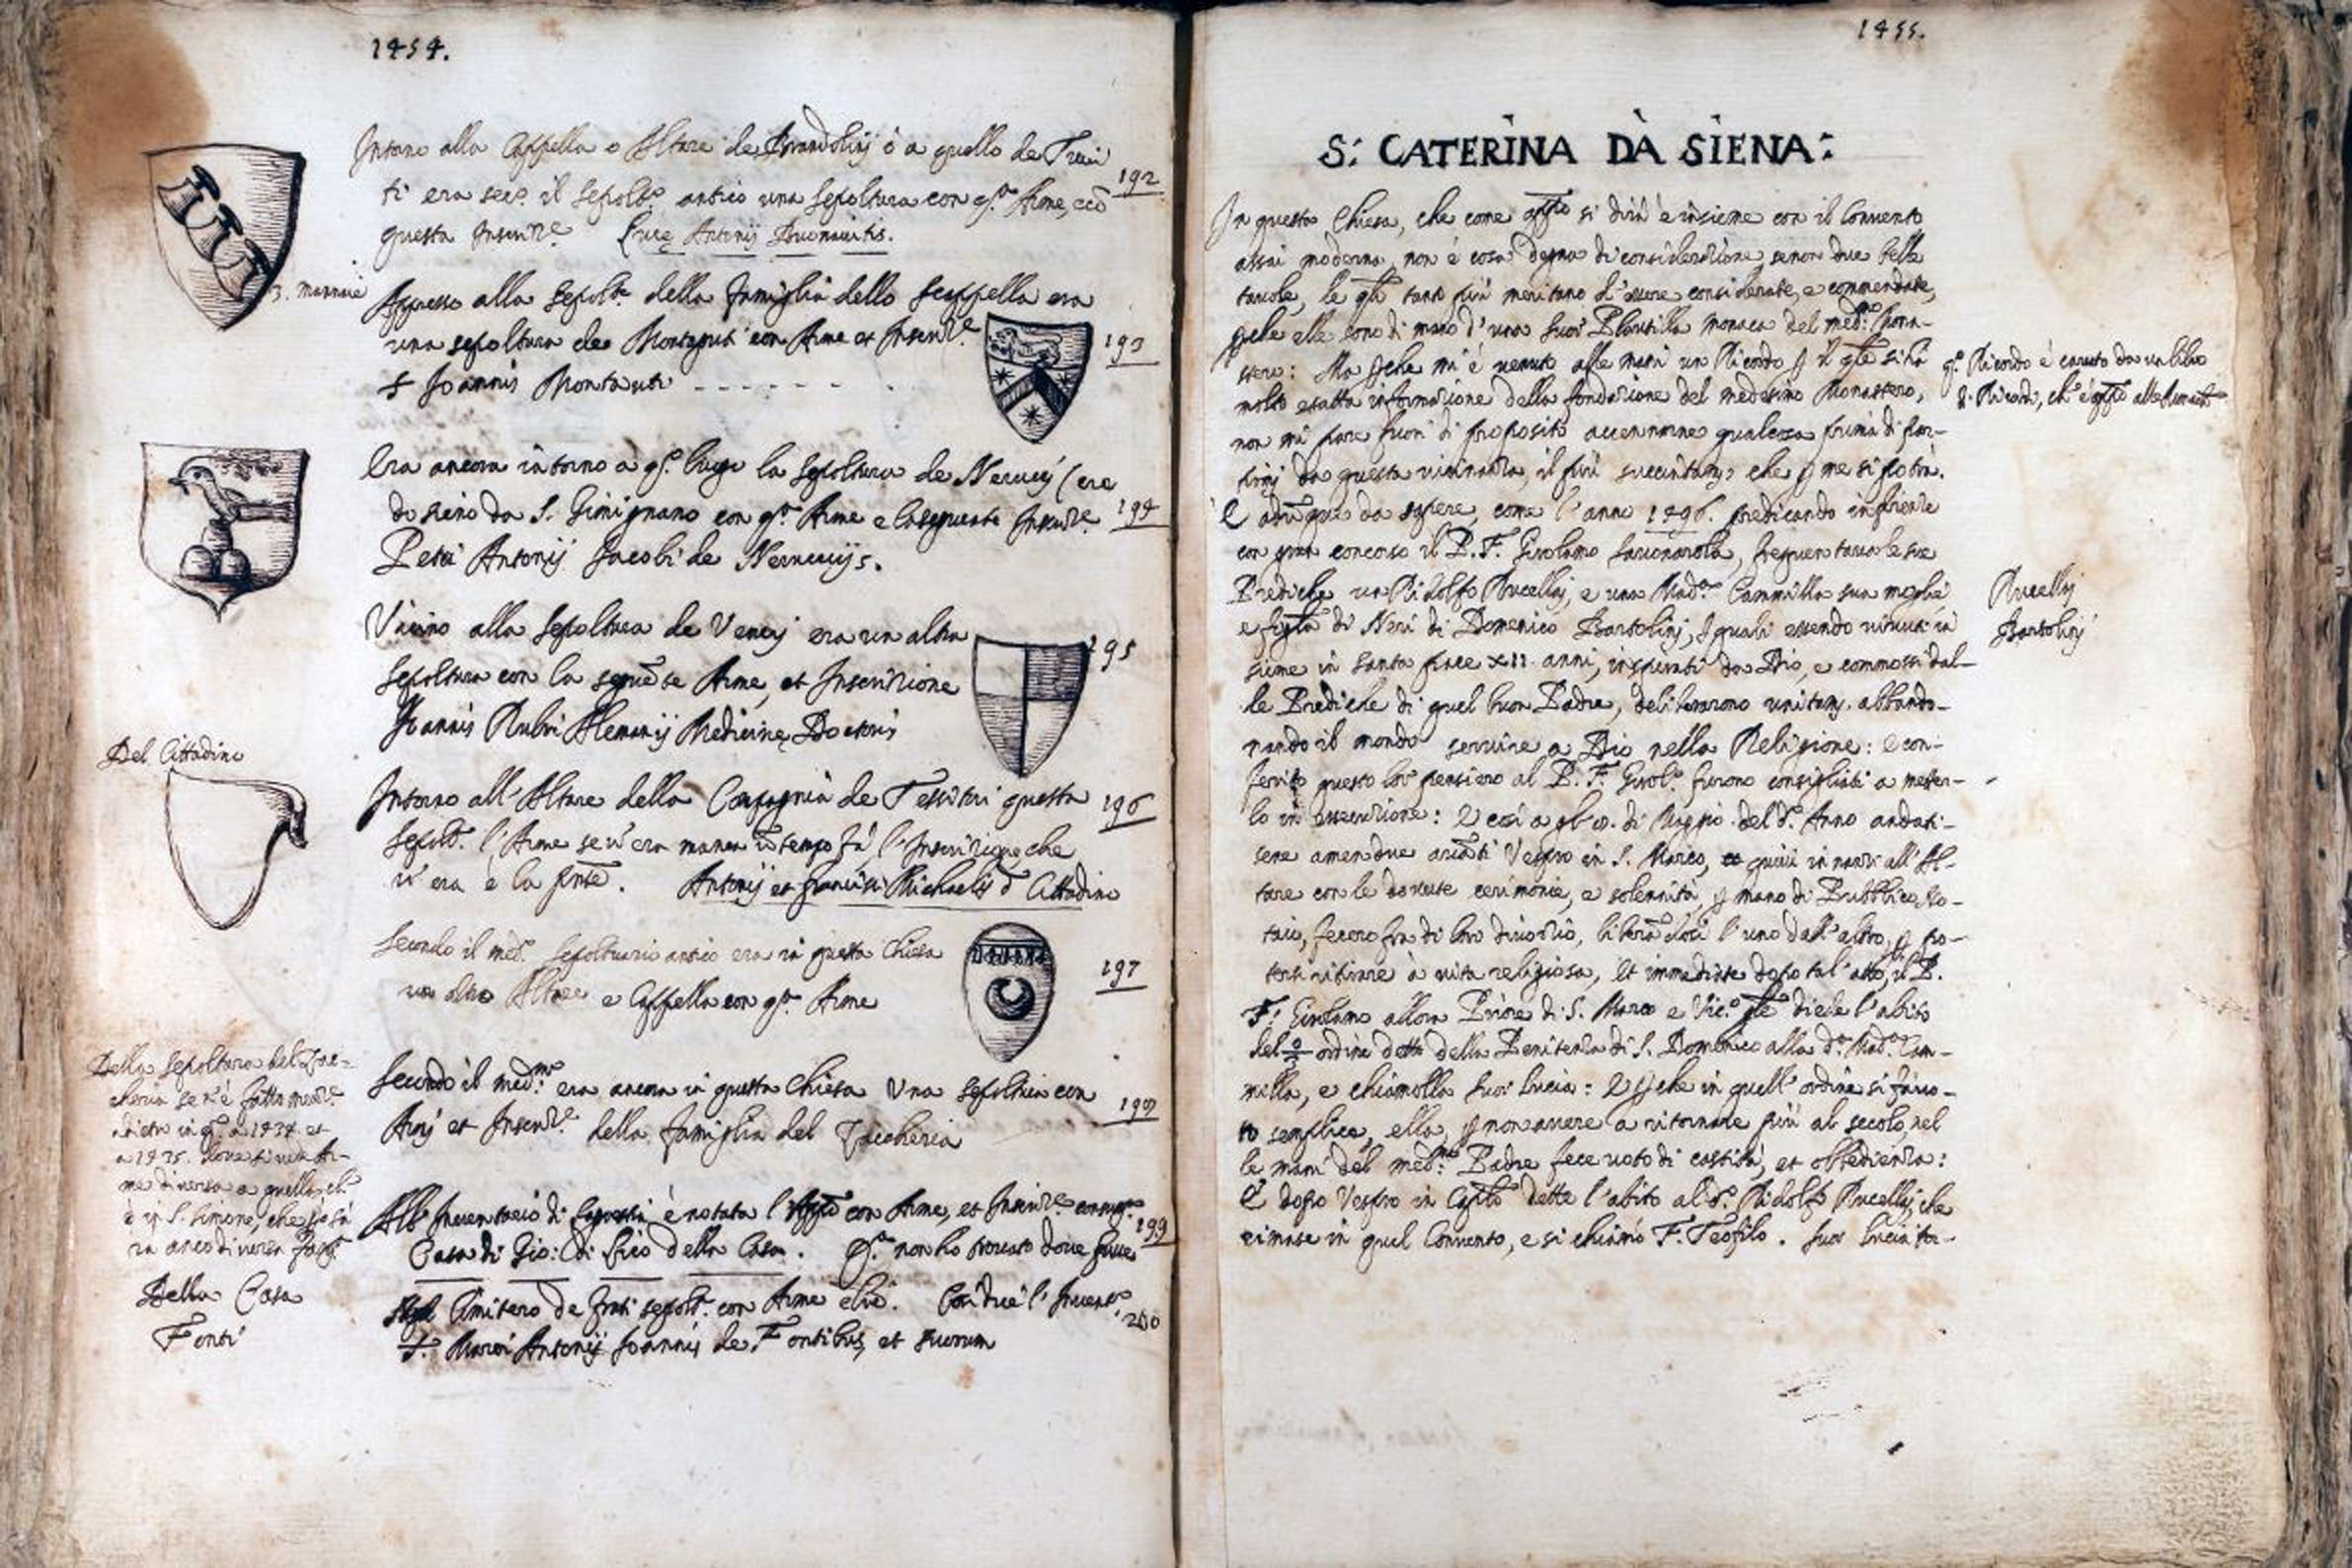 1454.
Intorno alla Cappella o Altare de Brandolinj ò a quello de
ti era sec.º il sepolt.º antico una sepoltura con q.ª Arme, et cō 192
questa Inscriz.e Luce Antonij Buonaiutis.
3. mannaie
Appresso alla sepolt.ª della famiglia dello Scappella era
una sepoltura de Montaguti con Arme et Inscriz.e 193
S Joannis Montauti - - - - - - -
Era ancora intorno a q.º luogo la sepoltura de Neruccj (cre
do sieno da S. Gimignano con q.ª Arme e la seguente Inscriz.e 194
Petri Antonij Jacobi de Neruccijs.
Vicino alla sepoltura de Vencj era un altra 195
sepoltura con la seguēte Arme, et Inscrizione
Joannis Rubri Alemanij Medicine Doctoris
Del Cittadino
Intorno all'Altare della Compagnia de Tessitori questa 196
sepolt.ª l'Arme se v'era manca ū tempo fà, l'Inscrizione che
v'era è la pn̄te. Antonij et francisci Michaelis d Cittadino
Secondo il med.º sepoltuario antico era in questa Chiesa
un altro Altare e Cappella con q.ª Arme 197
Della sepoltura del Tac-
cheria se n'è fatta menz.e
adietro in q.º a 1434. et
a 1435. dove si vede Ar-
me diversa a quella, ch'
è in S. Simone, che però sa
rà anco diversa fam.ª
Secondo il med.mo era ancora in questa Chiesa Una sepoltura con
Armj et Inscriz.e della famiglia del Taccheria 198
All'Inventario di Sagrestia è notata l' con Arme, et Inscriz.e 199
Casa di Gio: di Lico della Casa. Q.ª non ho trovato dove fusse
Della Casa
Fonti
Nel Cimitero de frati sepolt.ª con Arme etc. Così dice l'Invent.º 200
S. Marci Antonij Joannis de Fontibus, et suorum
1455.
S: CATERINA DA SIENA:
In questa Chiesa, che come app.º si dirà è insieme con il Convento
assai moderna, non è cosa degna di considerazione, senon due belle
tavole, le q̄li tanto più meritano d'essere considerate, e commendate,
pche elle sono di mano d'una Suor Plautilla monaca del med.mo Mona-
stero: Ma pche mi è venuto alle mani un Ricordo p il q̄le si ha
molto esatta informazione della fondazione del medesimo Monastero,
q.º Ricordo è cavato da un libro
di Ricordi, ch'è app.º alle Monache
non mi pare fuori di proposito accennarne qualcosa prima di par-
tirmj da questa vicinanza, il più succintam.e che p me si potrà.
È adūque da sapere, come l'anno 1496. predicando in firenze
con gran concorso il P. F. Girolamo Savonarola, frequentava le sue
Prediche un Ridolfo Rucellaj, e una Mad.ª Cammilla sua moglie
e figl.ª di Neri di Domenico Bartolinj, I quali essendo vivuti in
Rucellaj
Bartolinj
sieme in santa pace XII. anni, inspirati da Dio, e commossi dal-
le Prediche di quel buon Padre, deliberarono unitam. abbando-
nando il mondo servire a Dio nella Religione: e con-
ferito questo lor pensiero al P. F. Girol.º furono consigliati a metter-
lo in essecuzione: E così a gl'8. di Maggio del d.º Anno andati-
sene amendue avāti Vespro in S. Marco, et quivi innanzi all'Al-
tare con le dovute cerimonie, e solennità, p mano di Pubblico No-
taio, fecero fra di loro divorzio, liberādosi l'uno dall'altro, p po-
tersi ritirare à vita religiosa, Et immediate dopo tal'atto, il P.
F. Girolamo allora Priore di S. Marco e Vic.º Gn̄le diede l'abito
del 3º ordine detto della Penitenza di S. Domenico alla d.ª Mad.ª Cam-
milla, e chiamolla Suor Lucia: E pche in quell'ordine si fa vo-
to semplice, ella, p non avere a ritornare più al secolo, nel
le mani del med.mo Padre fece voto di castità, et obbedienza:
E dopo Vespro in Capit.º dette l'abito al d.º Ridolfo Rucellaj, che
rimase in quel Convento, e si chiamò F. Teofilo. Suor Lucia tor-